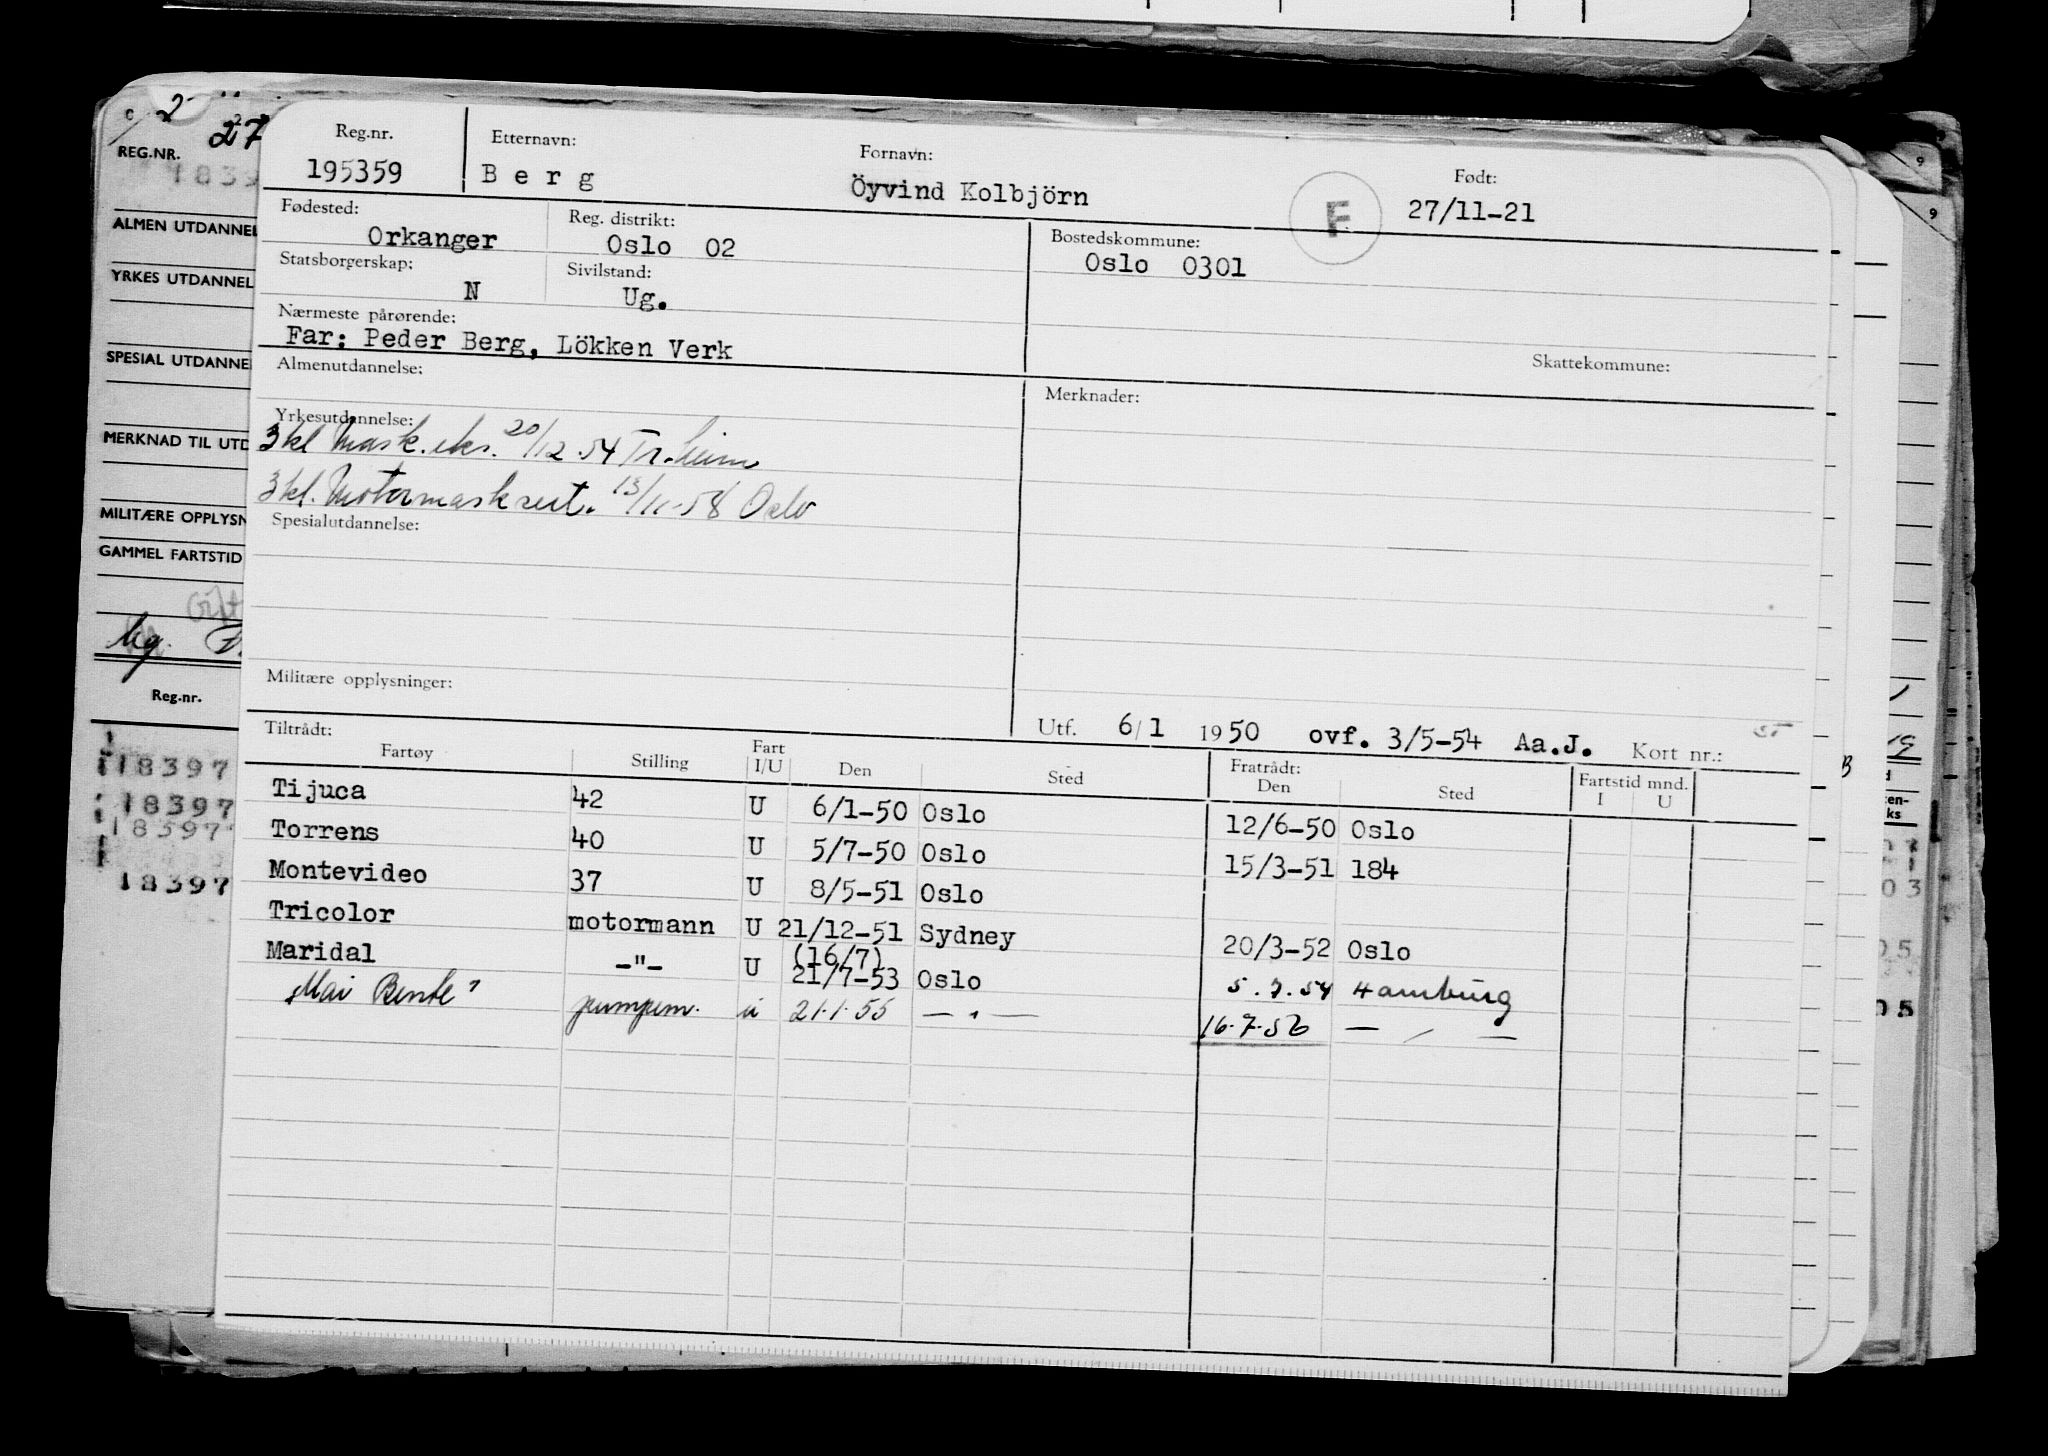 Reg.nr. Etternavn: Fornavn: Født:
195359 Berg Öyvind Kolbjörn F 27/11-21
Fødested: Reg. distrikt: Bostedskommune:
Orkanger Oslo 02 Oslo 0301
Statsborgerskap: Sivilstand:
N Ug.
Nærmeste pårørende:
Far: Peder Berg, Lökken Verk Skattekommune:
Almenutdannelse: Merknader:
Yrkesutdannelse:
3kl Mask.eks. 20/12-54 Tr.heim
3kl. Motormask sert. 13/11-58 Oslo
Spesialutdannelse:
Militære opplysninger:
Utf. 6/1 1950 ovf. 3/5-54 Aa.J. Kort nr.:
Tiltrådt: Fratrådt: Fartstid mnd.
Fartøy Stilling Fart I/U Den Sted Den Sted I U
Tijuca 42 U 6/1-50 Oslo 12/6-50 Oslo
Torrens 40 U 5/7-50 Oslo 15/3-51 184
Montevideo 37 U 8/5-51 Oslo
Tricolor motormann U 21/12-51 Sydney 20/3-52 Oslo
(16/7)
Maridal -"- U 21/7-53 Oslo 5.7.54 Hamburg
Mai Bente pumpem. u 21.1.55 — " — 16.7.56 — " —
C 2
27
REG.NR.
1839
ALMEN UTDANNEL
YRKES UTDANNEL
SPESIAL UTDANNE
MERKNAD TIL UTD
MILITÆRE OPPLYSN
GAMMEL FARTSTID
Gift
Reg.nr.
18397
18397
18397
18397
9
9
B